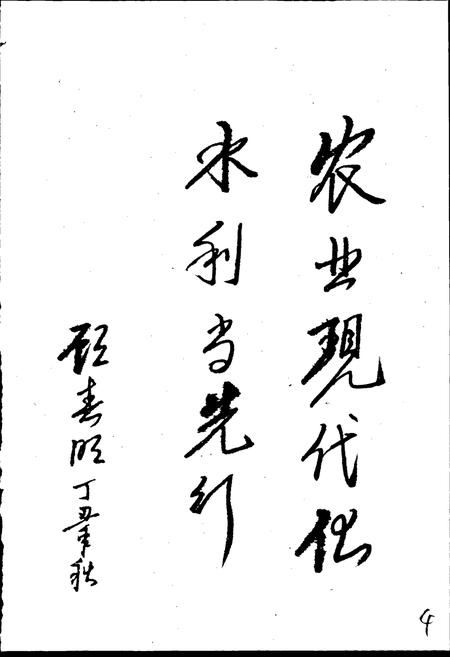 农业现代化
水利当先行
顾春明丁丑年秋
4